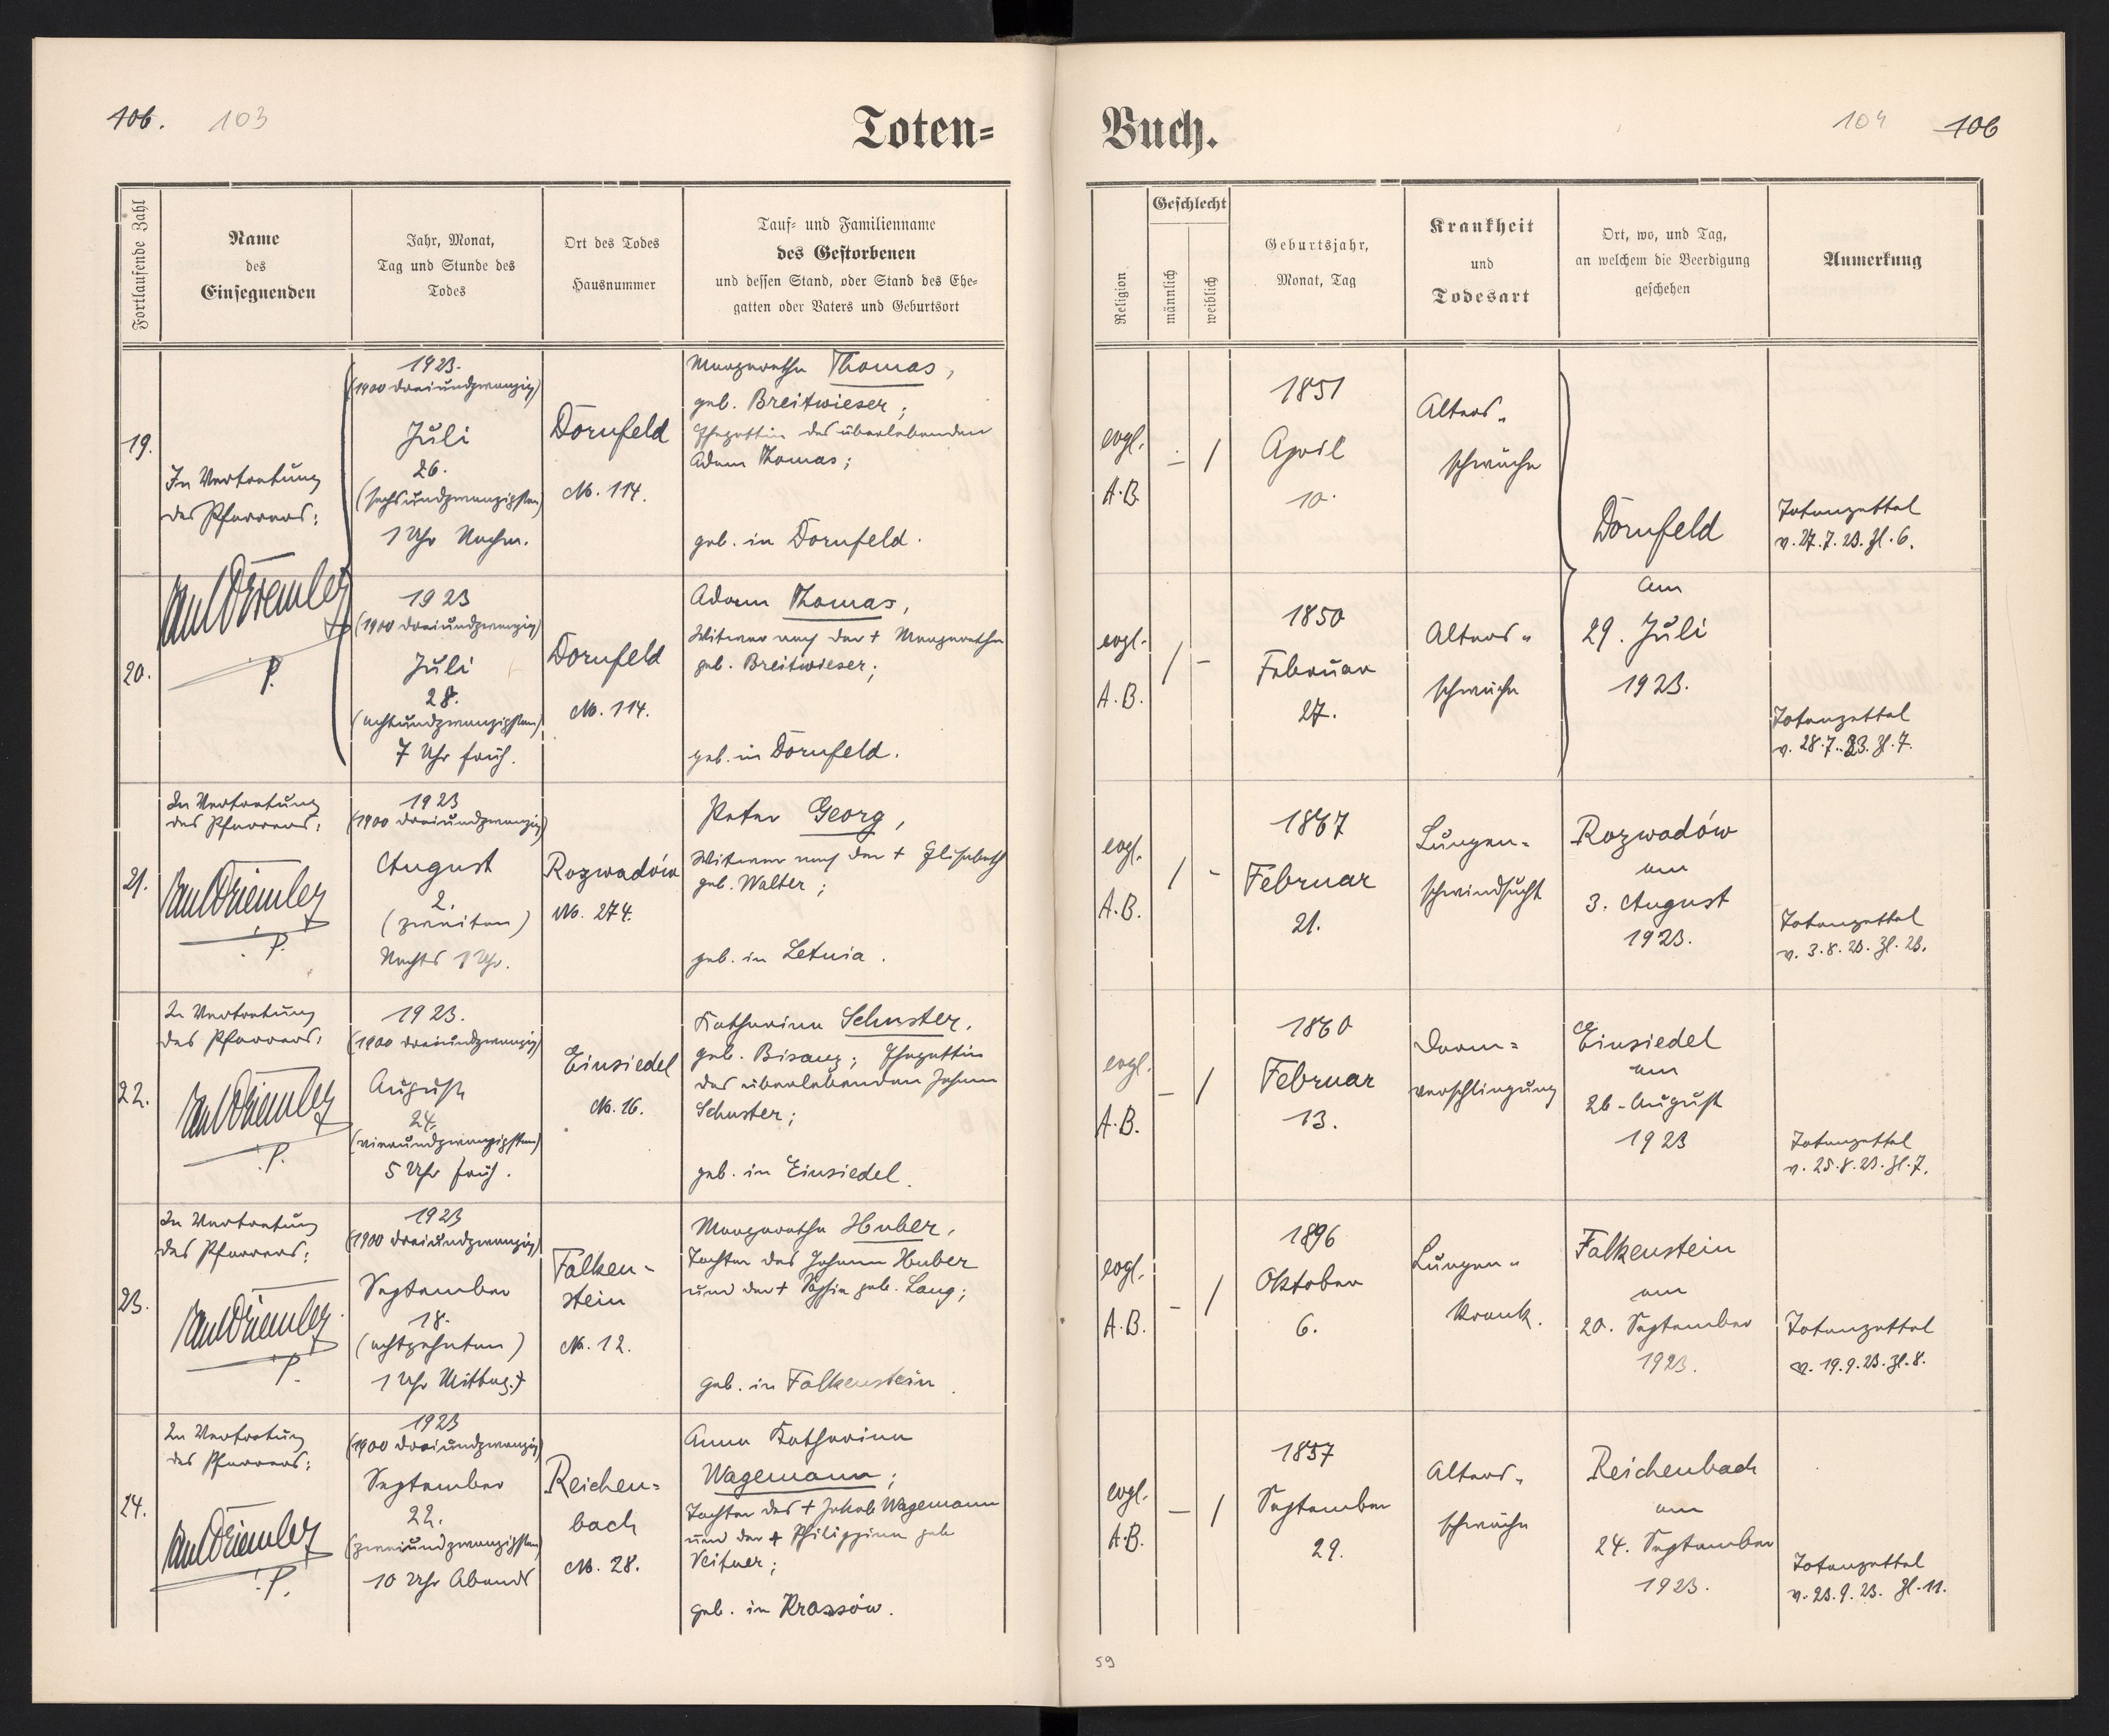 106. 103
Toten=
Fortlaufende Zahl
Name
des
Einsegnenden
Jahr, Monat,
Tag und Stunde des
Todes
Ort des Todes
Hausnummer
Tauf= und Familienname
des Gestorbenen
und dessen Stand, oder Stand des Ehe=
gatten oder Vaters und Geburtsort
19.
In Vertretung
des Pfarrers:
1923.
(1900 dreiundzwanzig)
Juli
26.
(sechsundzwanzigsten)
1 Uhr Nachm.
Dornfeld
No. 114.
Margarethe Thomas,
geb. Breitwieser;
Ehegattin des überlebenden
Adam Thomas;
geb. in Dornfeld.
20.
P.
1923
(1900 dreiundzwanzig)
Juli
28.
(achtundzwanzigsten)
7 Uhr früh.
Dornfeld
No. 114.
Adam Thomas,
Witwer nach der + Margarethe
geb. Breitwieser;
geb. in Dornfeld.
21.
In Vertretung
des Pfarrers:
P.
1923
(1900 dreiundzwanzig)
August
2.
(zweiten)
Nachts 1 Uhr.
Rozwadów
No. 274.
Peter Georg,
Witwer nach der + Elisabeth
geb. Walter;
geb. in Letnia.
22.
In Vertretung
des Pfarrers:
P.
1923.
(1900 dreiundzwanzig)
August
24.
(vierundzwanzigsten)
5 Uhr früh.
Einsiedel
No. 16.
Katharina Schuster,
geb. Bisanz; Ehegattin
des überlebenden Johann
Schuster;
geb. in Einsiedel.
23.
In Vertretung
des Pfarrers:
P.
1923
(1900 dreiundzwanzig)
September
18.
(achtzehnten)
1 Uhr Mittag.
Falken-
stein
No. 12.
Margarethe Huber,
Tochter des Johann Huber
und der + Sophie geb. Lang;
geb. in Falkenstein.
24.
In Vertretung
des Pfarrers:
P.
1923
(1900 dreiundzwanzig)
September
22.
(zweiundzwanzigsten)
10 Uhr Abends
Reichen=
bach
No. 28.
Anna Katharina
Wagemann;
Tochter des + Jakob Wagemann
und der + Philippine geb
geb. in Krassów.
Buch.
104 106
Religion
Geschlecht
männlich
weiblich
Geburtsjahr,
Monat, Tag
Krankheit
und
Todesart
Ort, wo, und Tag,
an welchem die Beerdigung
geschehen
Anmerkung
evgl.
A.B.
- /
1851
April
10.
Alters-
schwäche
Dornfeld
am
29. Juli
1923.
Totenzettel
v. 27.7.23. Zl. 6.
evgl.
A.B.
/ -
1850
Februar
27.
Alters-
schwäche
Totenzettel
v. 28.7.23. Zl. 7.
evgl.
A.B.
/ -
1867
Februar
21.
Lungen=
schwindsucht
Rozwadów
am
3. August
1923.
Totenzettel
v. 3.8.23. Zl. 23.
evgl.
A.B.
- /
1860
Februar
13.
Darm=
verschlingung
Einsiedel
am
26. August
1923
Totenzettel
v. 25.8.23. Zl. 7.
evgl.
A.B.
- /
1896
Oktober
6.
Lungen-
krank.
Falkenstein
am
20. September
1923.
Totenzettel
v. 19.9.23. Zl. 8.
evgl.
A.B.
- /
1857
September
29.
Alters-
schwäche
Reichenbach
am
24. September
1923.
Totenzettel
v. 23.9.23. Zl. 11.
59